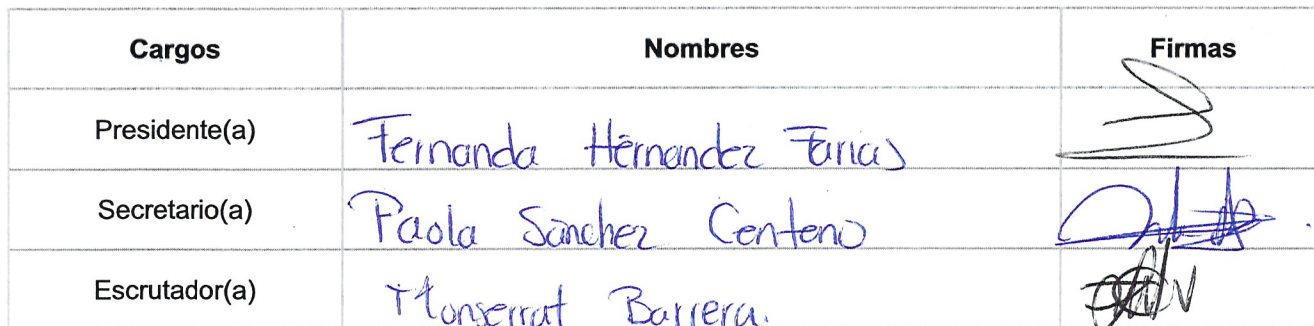 Cargos Nombres Firmas
Presidente(a) Fernanda Hernandez Farias
Secretario(a) Paola Sanchez Centeno
Escrutador(a) Monserrat Barrera.